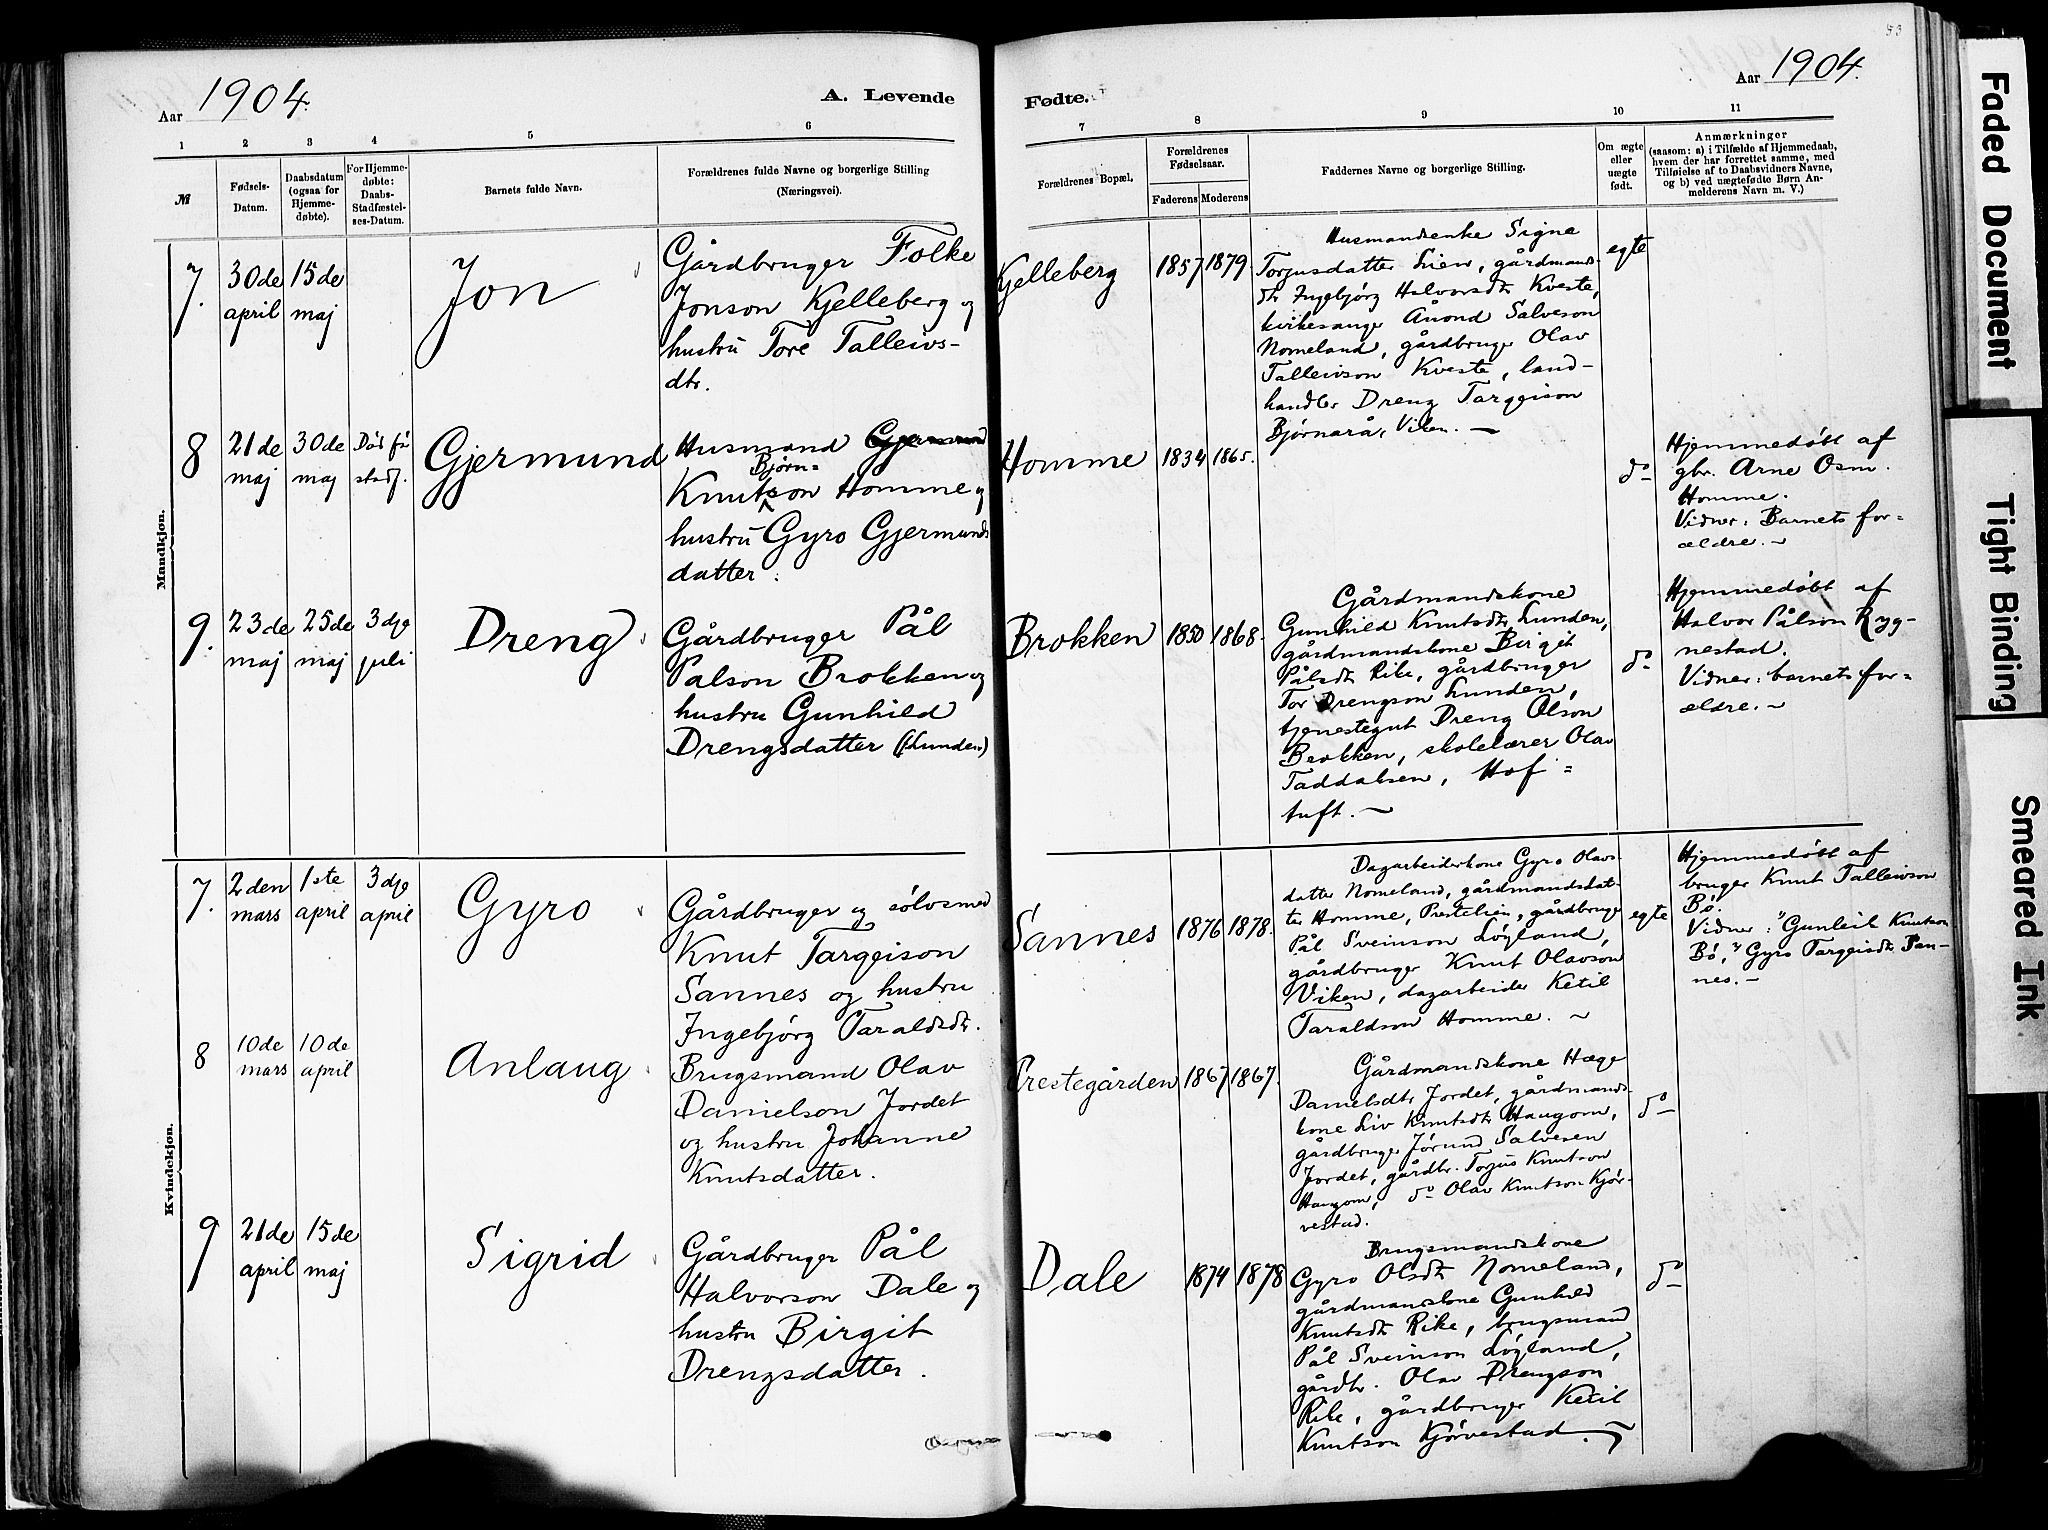 Aar 1904.
A. Levende
1
2
3
4
5
6
№
Fødsels-
Datum.
Daabsdatum
(ogsaa for
Hjemme-
døbte).
For Hjemme-
døbte:
Daabs-
Stadfæstel-
ses-Datum.
Barnets fulde Navn.
Forældrenes fulde Navne og borgerlige Stilling
(Næringsvei).
Mandkjøn.
7.
30de
april
15de
maj
Jon
Gårdbruger Folke
Jonson Kjelleberg og
hustru Tore Talleivs-
dtr.
8
21de
maj
30de
maj
Død før
stadf.
Gjermund
Husmand Gjermund
Bjørn=
Knutson Homme og
hustru Gyro Gjermunds
datter.
9.
23de
maj
25de
maj
3dje
juli
Dreng
Gårdbruger Pål
Palson Brokken og
hustru Gunhild
Drengsdatter (Lunden)
Kvindekjøn.
7.
2den
mars
1ste
april
3dje
april
Gyro
Gårdbruger og sølvsmed
Knut Targeison
Sannes og hustru
Ingebjørg Taraldsdtr.
8
10de
mars
10de
april
Anlaug
Brugsmand Olav
Danielson Jordet
og hustru Johanne
Knutsdatter.
9
21de
april
15de
maj
Sigrid
Gårdbruger Pål
Halvorson Dale og
hustru Birgit
Drengsdatter.
53
Aar 1904.
Fødte.
7
8
9
10
11
Forældrenes Bopæl.
Forældrenes
Fødselsaar.
Faderens
Moderens
Faddernes Navne og borgerlige Stilling.
Om ægte
eller
uægte
født.
Anmærkninger
(saasom: a) i Tilfælde af Hjemmedaab,
hvem der har forrettet samme, med
Tilføielse af to Daabsvidners Navne,
og b) ved uægtefødte Børn An-
melderens Navn m. V.)
Kjelleberg
1857
1879.
Husmandsenke Signe
Torjusdatter Lien, gårdmands-
dtr Ingebjørg Halvorsdtr Kveste,
kirkesanger Ånond Salveson
Nomeland, gårdbruger Olav
Talleivson Kveste, land-
handler Dreng Targeison
Bjørnarå, Viken. —
egte
Homme
1834
1865.
do
Hjemmedøbt af
gbr. Arne Osm.
Homme.
Vidner: Barnets for=
ældre. —
Brokken
1850
1868.
Gårdmandskone
Gunhild Knutsdtr Lunden,
gårdmandskone Birgit
Pålsdtr Rike, gårdbruger
Tor Drengson Lunden,
tjenestegut Dreng Olson
Brokken, skolelærer Olav
Taddalsen, Hof=
tuft. —
do
Hjemmedøbt af
Halvor Pålson Ryg-
nestad.
Vidner: barnets for=
ældre. —
Sannes
1876
1878.
Dagarbeiderkone Gyro Olavs-
datter Nomeland, gårdmandsdat-
ter Homme, Prestelien, gårdbruger
Pål Sveinson Løgland,
gårdbruger Knut Olavson
Viken, dagarbeider Ketil
Taraldson Homme. —
egte
Hjemmedøbt af
bruger Knut Talleivson
Bø.
Vidner: Gunleik Knutson
Bø, Gyro Targeisdtr San-
nes. —
Prestegården
1867
1867.
Gårdmandskone Hæge
Danielsdtr Jordet, gårdmands-
kone Liv Knutsdtr Haugom,
gårdbruger Jørund Salvesen
Jordet, gårdbr. Torjus Knutson
Haugom, do Olav Knutson Kjør-
vestad.
do
Dale
1874
1878
Brugsmandskone
Gyro Olsdtr Nomeland,
gårdmandskone Gunhild
Knutsdtr Rike, brugsmand
Pål Sveinson Løgland,
gårdbr. Olav Drengson
Rike, gårdbruger Ketil
Knutson Kjørvestad. —
do
Faded Document
Tight Binding
Smeared Ink